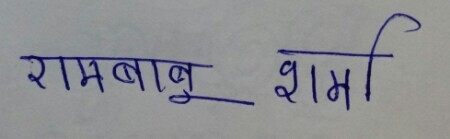 रामबाबू शर्मा